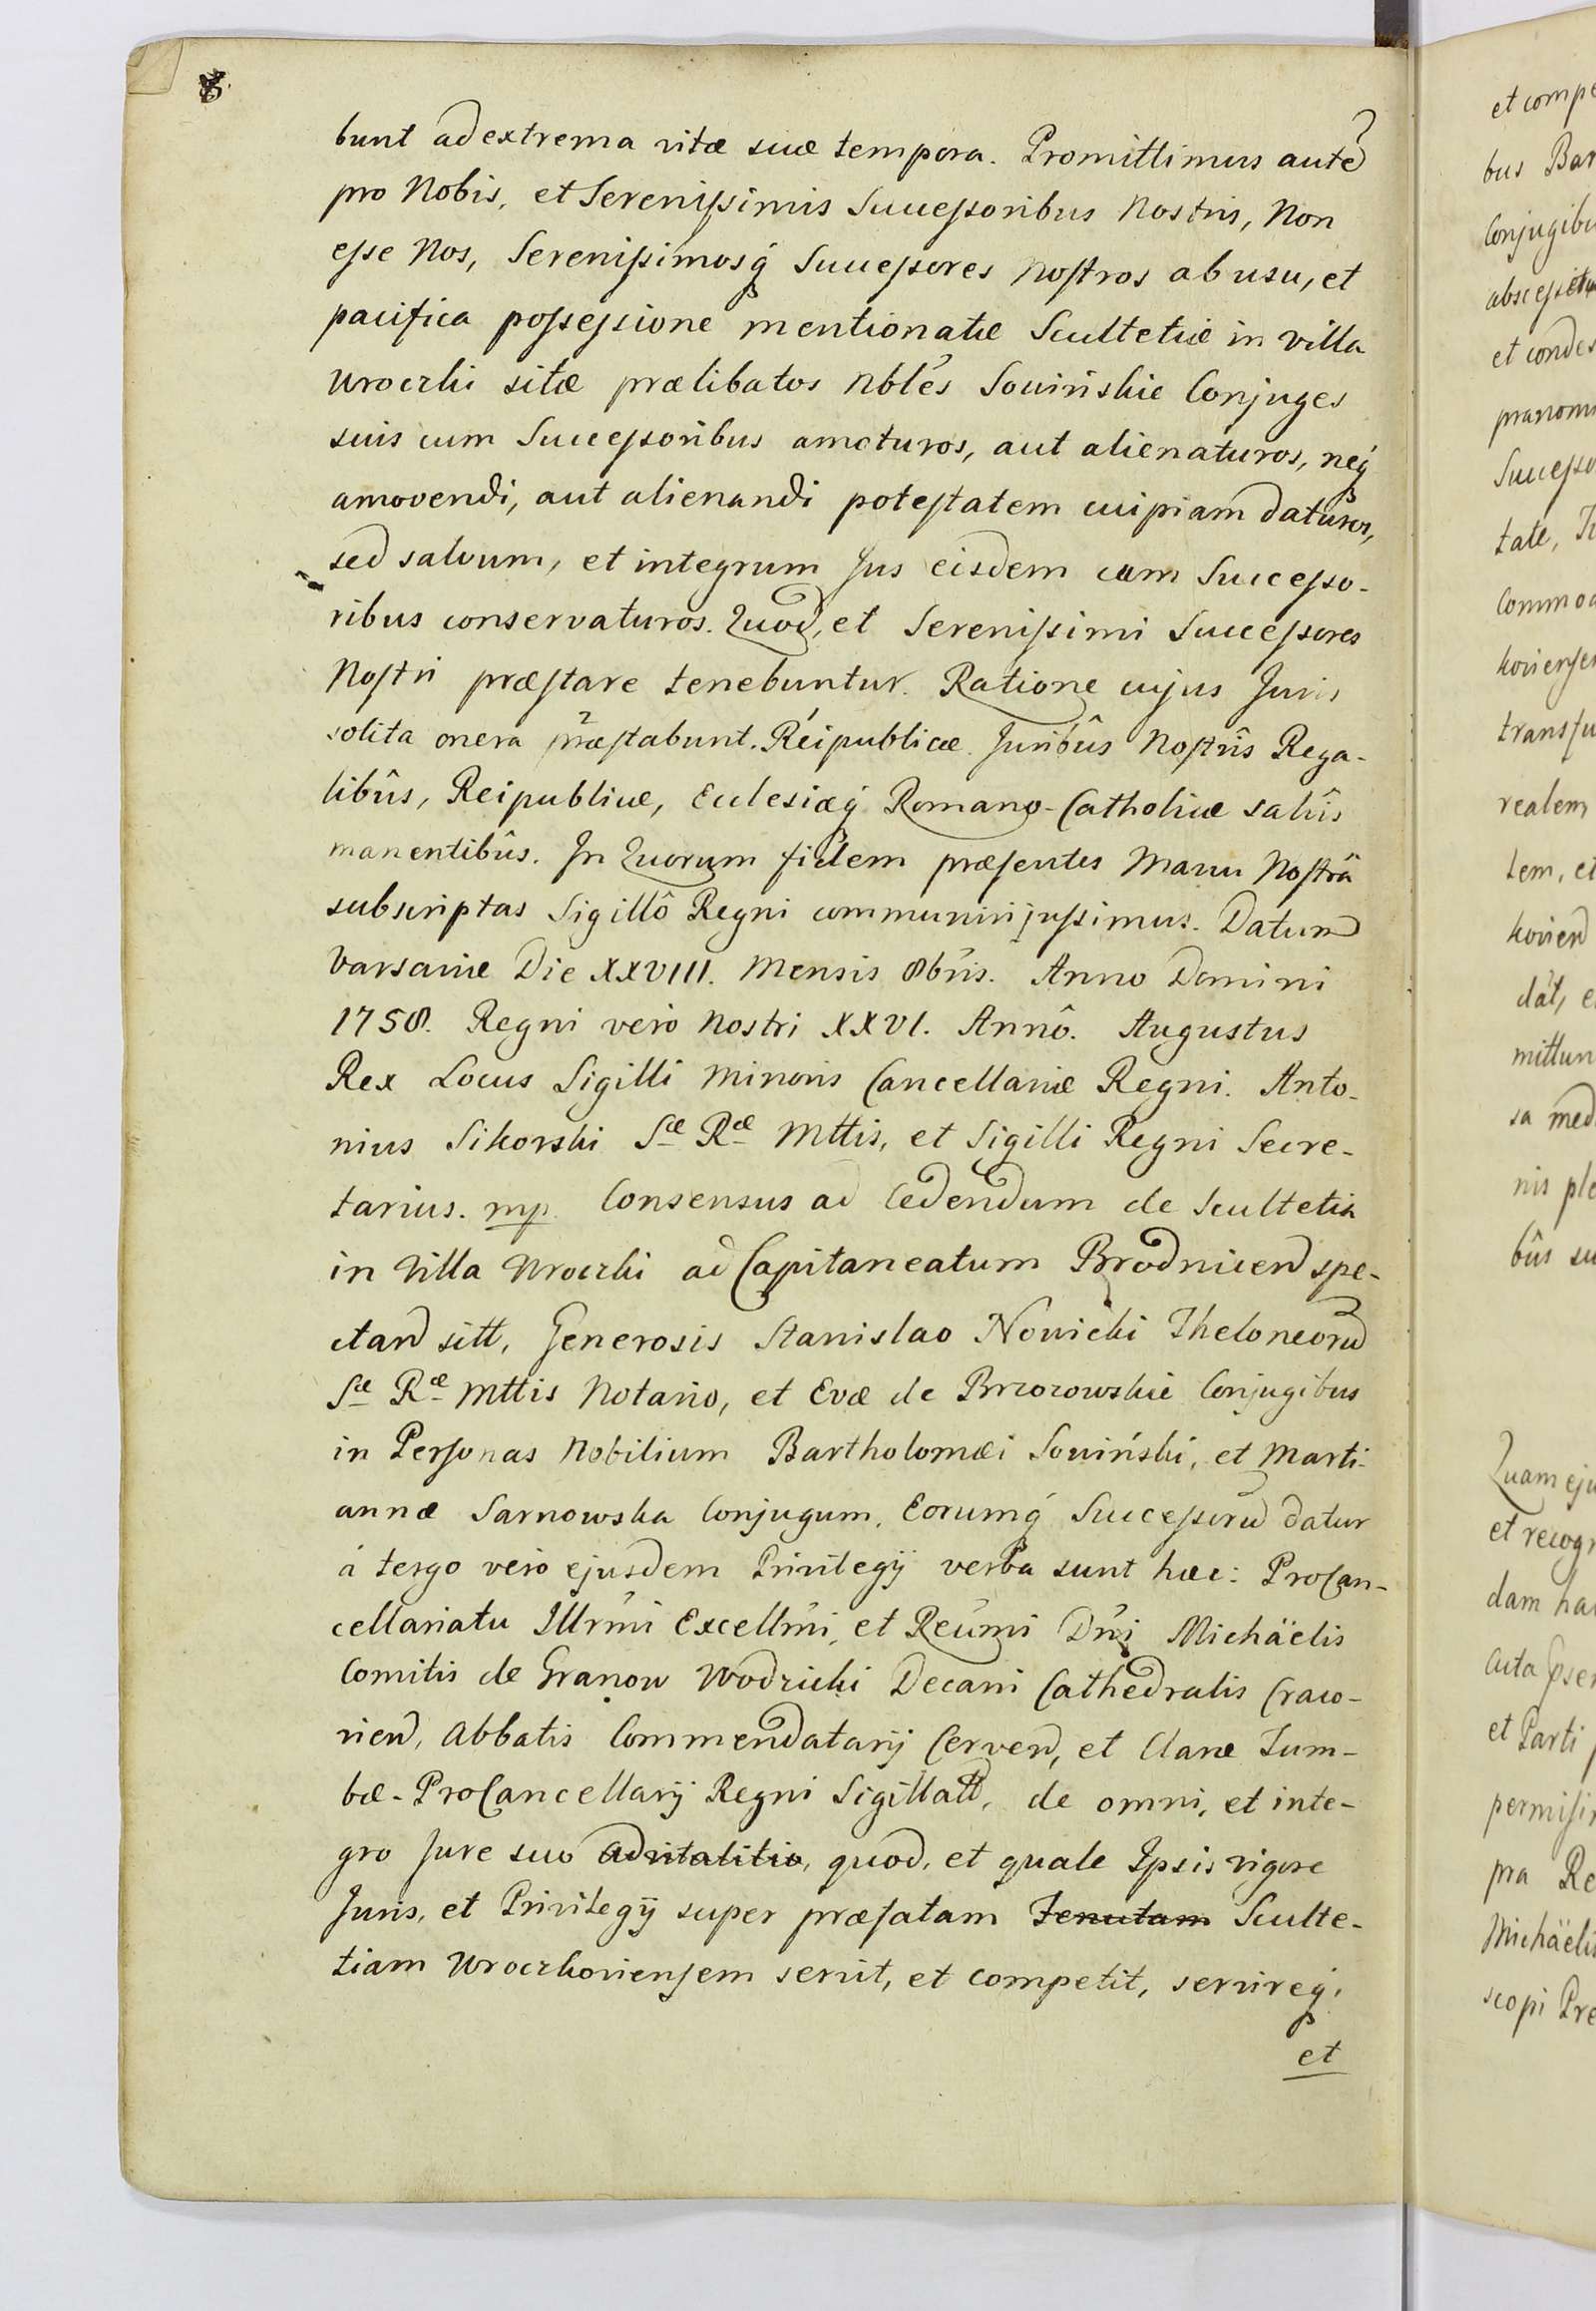 8.
bunt ad extrema vitæ suæ tempora. Promittimus aute
pro Nobis, et Serenissimis Successoribus Nostris, Non
esse Nos, Serenissimosq́ Successores Nostros ab usu, et
pacifica possessione mentionatæ Scultetiæ in villa
Wroczki sitæ prælibatos Nbles Sowińskie Conjuges
suis cum Successoribus amoturos, aut alienaturos, neq́
amovendi, aut alienandi potestatem cuipiam daturos,
sed salvum, et integrum Jus eisdem cum Successo-
ribus conservaturos. Quod, et Serenissimi Successores
Nostri præstare tenebuntur. Ratione cujus Juris
solita onera præstabunt. Reipublicæ. Juribûs Nostrîs Rega-
libûs, Reipublicæ, Ecclesiæq́ Romano-Catholicæ salvîs
manentibûs. In Quorum fidem præsentes Manu Nostrâ
subscriptas Sigillô Regni communiri jussimus. Datum
Varsaviæ Die XXVIII. Mensis 8bris. Anno Domini
1758. Regni verò Nostri XXVI. Annô. Augustus
Rex Locus Sigilli Minoris Cancellariæ Regni. Anto-
nius Sikorski Sæ Ræ Mttis, et Sigilli Regni Secre-
tarius. mp. Consensus ad Cedendum de Scultetia
in Villa Wroczki ad Capitaneatum Brodnicen spe-
ctan sitt, Generosis Stanislao Nowicki Theloneoru
Sæ Ræ Mttis Notario, et Evæ de Brzozowskie Conjugibus
in Personas Nobilium Bartholomæi Sowiński, et Marti-
annæ Sarnowska Conjugum, Eorumq́ Successoru datur
á tergo verò ejusdem Privilegÿ verba sunt hæc: ProCan-
cellariatu Illrmi Excellmi, et Reumi Dni Michäelis
Comitis de Granow Wodzicki Decani Cathedralis Craco-
vien, Abbatis Commendatarÿ Cerven, et Claræ Tum-
bæ - ProCancellarÿ Regni Sigillatt, de omni, et inte-
gro Jure suo advitalitio, quod, et quale Ipsis vigore
Juris, et Privilegÿ super præfatam Tenutam Sculte-
tiam Wroczkoviensem servit, et competit, servireq́,
et